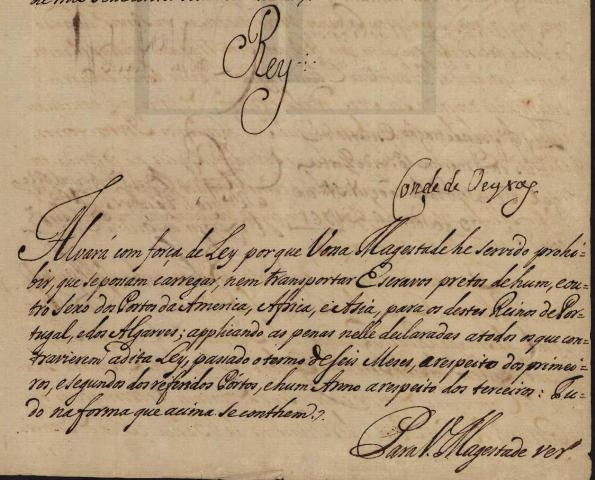 Rey
Conde de Oeyras
Alvará com força de Ley porque Vossa Magestade he servido prohi-
bir, que se possam carregar, nem transportar Escravos pretos de hum, e ou-
tro Sexo dos Portos da America, Africa, e Asia, para os destes Reinos de Por-
tugal, e dos Algarves; applicando as penas nelle declaradas a todos os que con-
travierem a dita Ley, passado o termo de seis Meses, a respeito dos primei-
ros, e segundos dos referidos Pórtos, e hum Anno a respeito dos terceiros: Tu-
do na forma que acima se conthem.
Para V. Magestade ver.